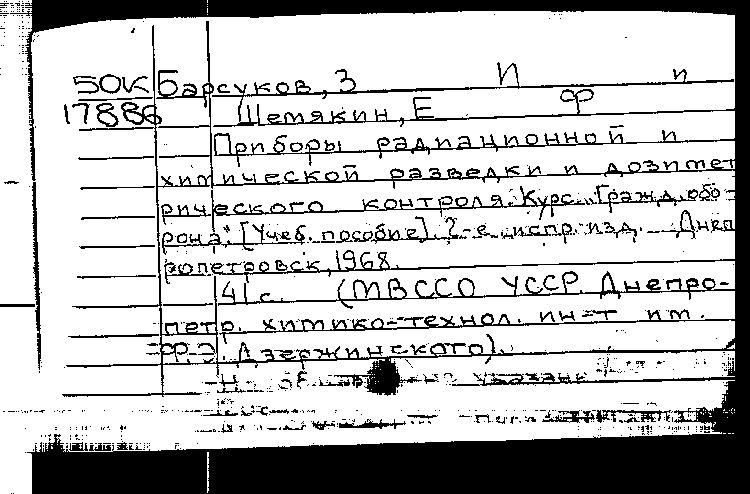 50К Барсуков, З И и
17886 Шемякин, Е Ф
Приборы радиационной и
химической разведки и дозимет
рического контроля. Курс „Гражд. обо-
рона". [Учеб. пособие]. 2-е испр. изд. Днеп
ропетровск, 1968.
41 с. (МВССО УССР. Днепро-
петр. химико-технол. ин-т им.
Ф. Э. Дзержинского).
На